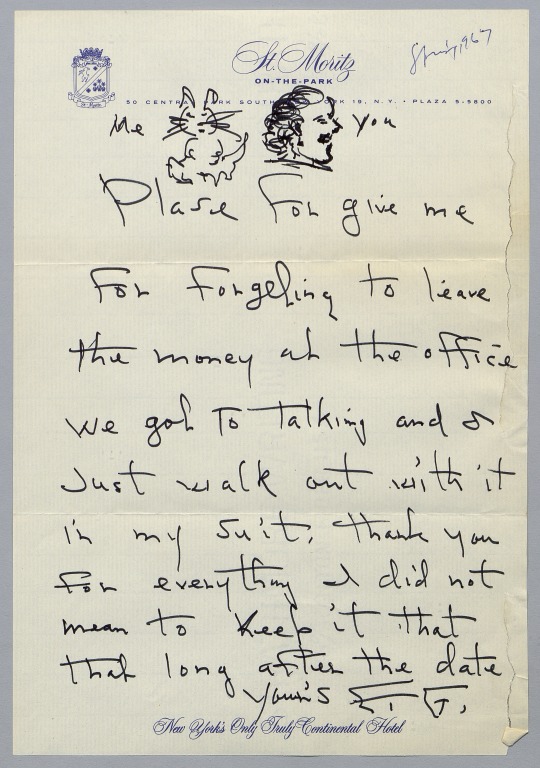 St. Moritz
ON-THE-PARK
Spring, 1967
50 CENTRAL PARK SOUTH YORK 19, N.Y. • PLAZA 5-5800
Me You
Plase For give me
For Forgeting to leave
the money at the office
we got To Talking and I
Just walk out with it
in my suit, thank you
For everything I did not
mean to keep it that
that long after the date
your's E. J.
New York's Only Truly Continental Hotel